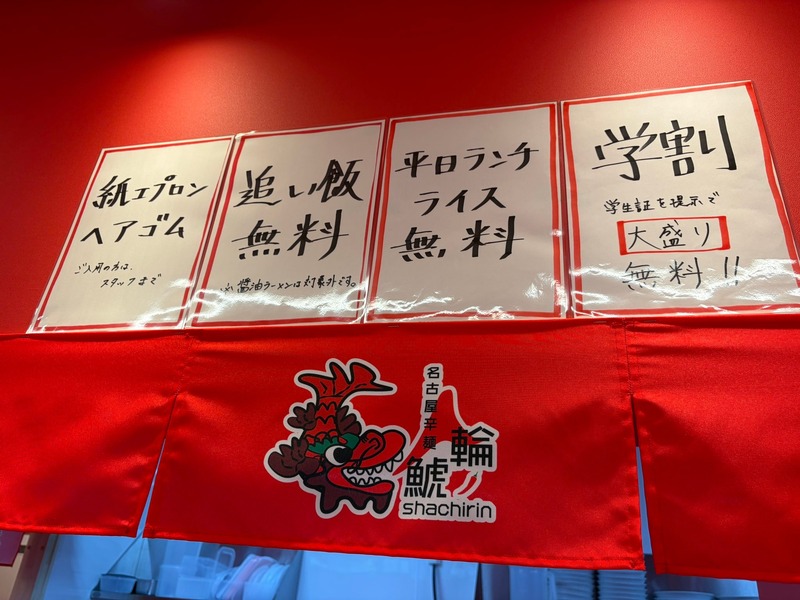 紙エプロン
ヘアゴム
ご入用の方は、
スタッフまで
追い飯
無料
※醤油ラーメンは対象外です。
平日ランチ
ライス
無料
学割
学生証を提示で
大盛り
無料!!
名古屋辛麺
鯱輪
shachirin